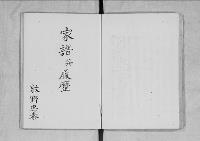 家譜并履歴
牧野忠泰